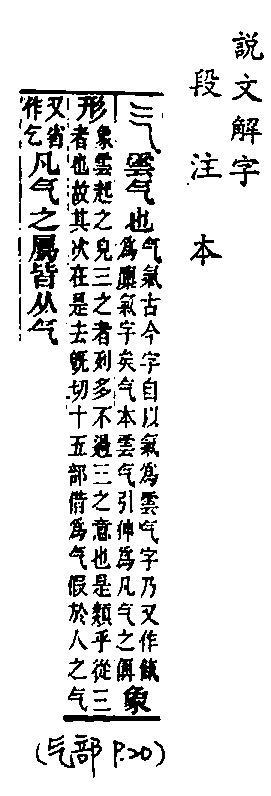 説文解字
段注本
气 雲气也
气氣古今字自以氣爲雲气字乃又作餼
爲廩氣字矣气本雲气引伸爲凡气之偁
象
形
象雲起之皃三之者列多不過三之意也是類乎從三
者也故其次在是去旣切十五部借爲气假於人之气
又省
作乞
凡气之屬皆从气
(气部 P.20)